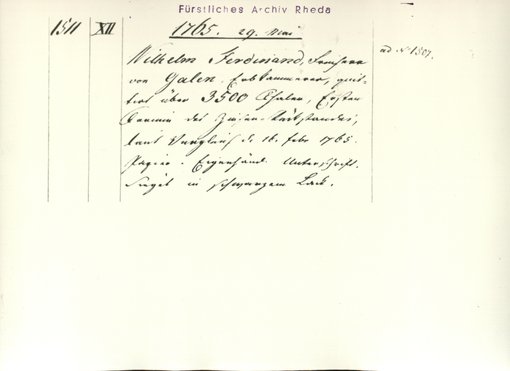 Fürstliches Archiv Rheda
1511 XII 1765. 29. Mai
Wilhelm Ferdinand, Freiherr
von Galen. Erbkämmerer, quit-
tirt über 3500 Thaler, Ersten
Termin des Zinsen-Rückstandes,
laut Vergleich d. 16. Febr. 1765.
Papier. Eigenhänd. Unterschrift.
Siegel in schwarzem Lack.
ad N. 1507.